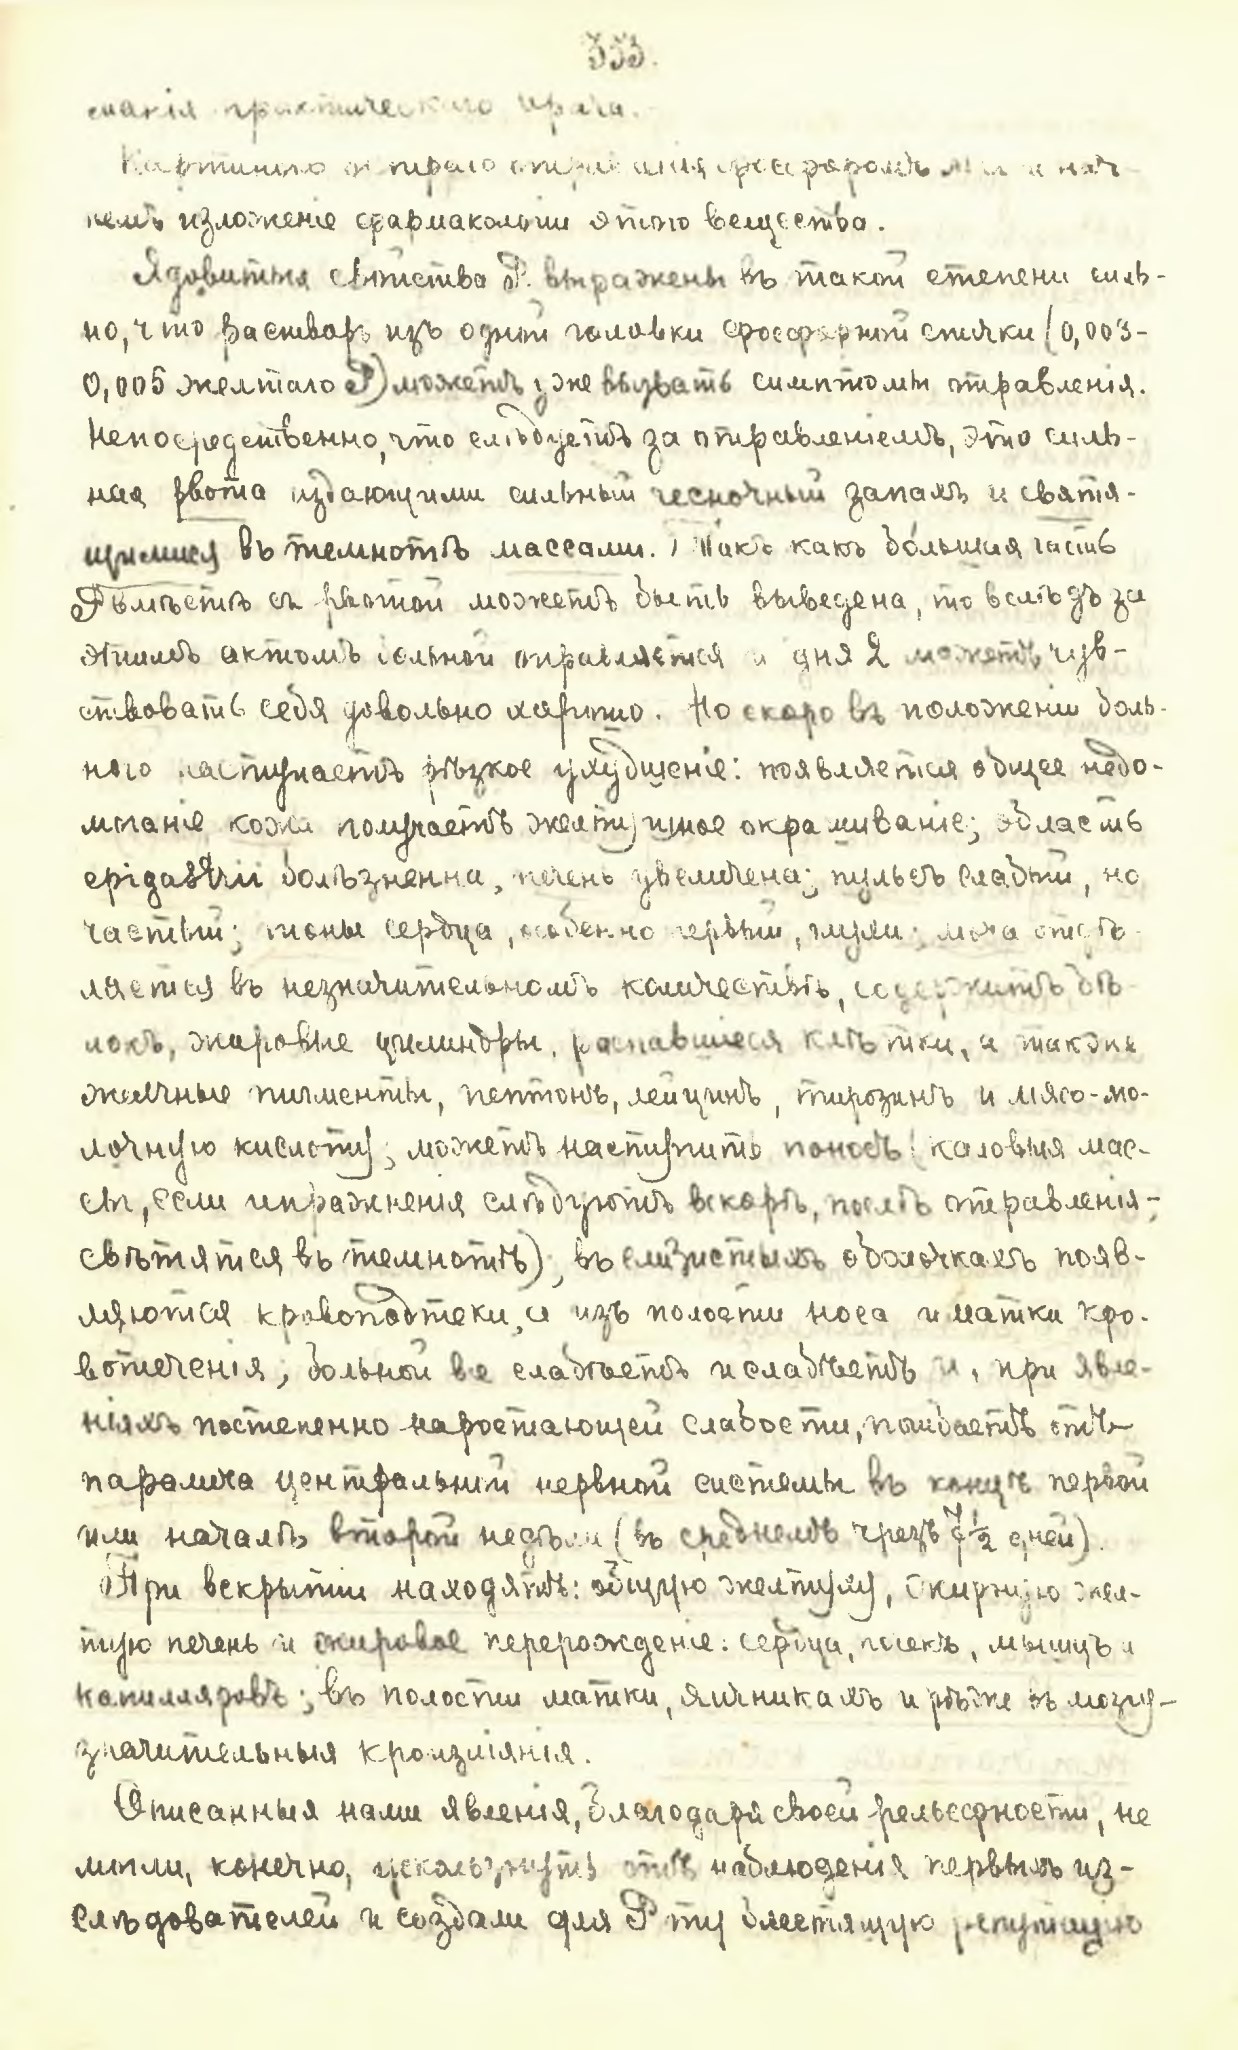 353.
манія практическаго врача.
Картиною остраго отравленія фосфоромъ мы и нач-
немъ изложеніе фармакологіи этого вещества.
Ядовитыя свойства P. выражены въ такой степени силь-
но, что растворъ изъ одной головки фосфорной спички (0,003-
0,005 желтаго P) можетъ уже вызвать симптомы отравленія.
Непосредственно, что слѣдуетъ за отравленіемъ, это силь-
ная рвота издающими сильный чесночный запахъ и святя-
щимися въ темнотѣ массами. Такъ какъ большая часть
P вмѣстѣ съ рвотой можетъ быть выведена, то вслѣдъ за
этимъ актомъ больной оправляется и дня 2 можетъ чув-
ствовать себя довольно хорошо. Но скоро въ положеніи боль-
ного наступаетъ рѣзкое ухудшеніе: появляется общее недо-
моганіе кожа получаетъ желтушное окрашиваніе; область
epigastrii болѣзненна, печень увеличена; пульсъ слабый, но
частый; тоны сердца, особенно первый, глухи; моча отдѣ-
ляется въ незначительномъ количествѣ, содержитъ бѣ-
локъ, жировые цилиндры, распавшіеся клѣтки, а также
желчные пигменты, пептонъ, лейцинъ, тирозинъ и мясо-мо-
лочную кислоту; можетъ наступить поносъ (каловыя мас-
сы, если испражненія слѣдуютъ вскорѣ, послѣ отравленія,-
свѣтятся въ темнотѣ); въ слизистыхъ оболочкахъ появ-
ляются кровоподтеки, а изъ полости носа и матки кро-
вотеченія; больной все слабѣетъ и слабѣетъ и, при явле-
ніяхъ постепенно наростающей слабости, погибаетъ отъ
паралича центральной нервной системы въ концѣ первой
или началѣ второй недѣли (въ среднемъ чрезъ 7½ дней).
При вскрытіи находятъ: общую желтуху, жирную жел-
тую печень и жировое перерожденіе: сердца, почекъ, мышцъ и
капилляровъ; въ полости матки, яичникахъ и рѣже въ мозгу-
значительныя кроизліянія.
Описанныя нами явленія, благодаря своей рельефности, не
могли, конечно, ускользнуть отъ наблюденія первыхъ из-
слѣдователей и создали для P ту блестящую репутацію